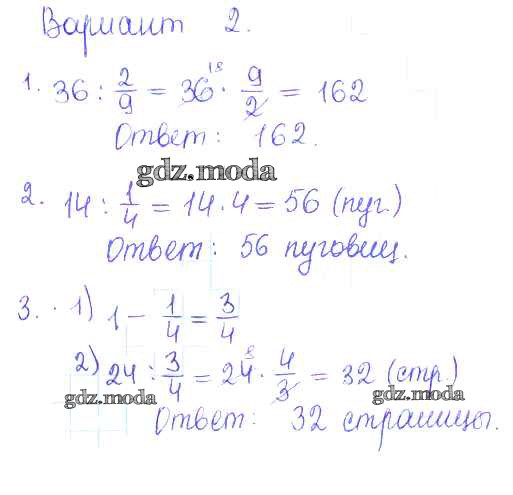 Вариант 2.
1. 36 : 2/9 = 36 18 · 9/2 = 162
Ответ: 162.
gdz.moda
2. 14 : 1/4 = 14 · 4 = 56 (пуг.)
Ответ: 56 пуговиц.
3. · 1) 1 - 1/4 = 3/4
2) 24 : 3/4 = 24 8 · 4/3 = 32 (стр.)
gdz.moda gdz.moda
Ответ: 32 страницы.